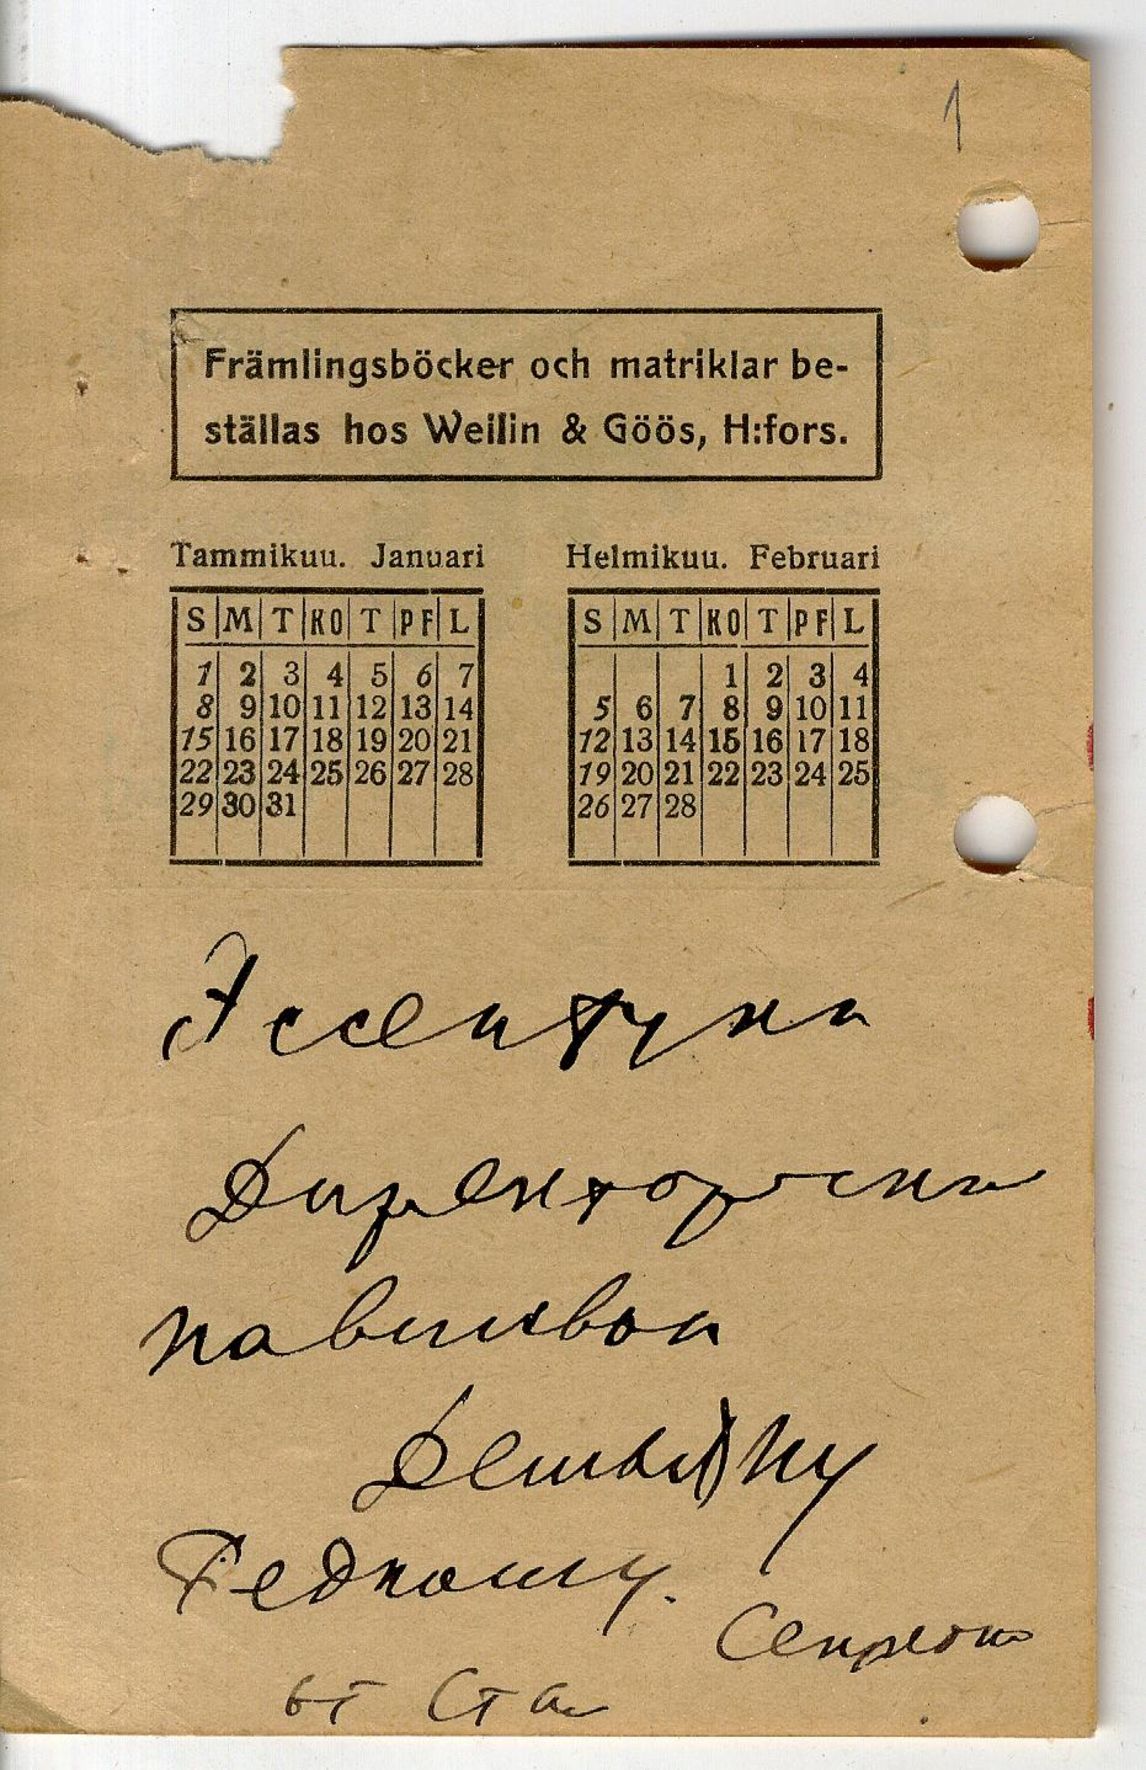 1
Främlingsböcker och matriklar be-
ställas hos Weilin & Göös, H:fors.
Tammikuu. Januari Helmikuu. Februari
S M T KO T PF L S M T KO T PF L
1 2 3 4 5 6 7 1 2 3 4
8 9 10 11 12 13 14 5 6 7 8 9 10 11
15 16 17 18 19 20 21 12 13 14 15 16 17 18
22 23 24 25 26 27 28 19 20 21 22 23 24 25
29 30 31 26 27 28
Ессентуки
Демьяну
Бедному.
от Ста